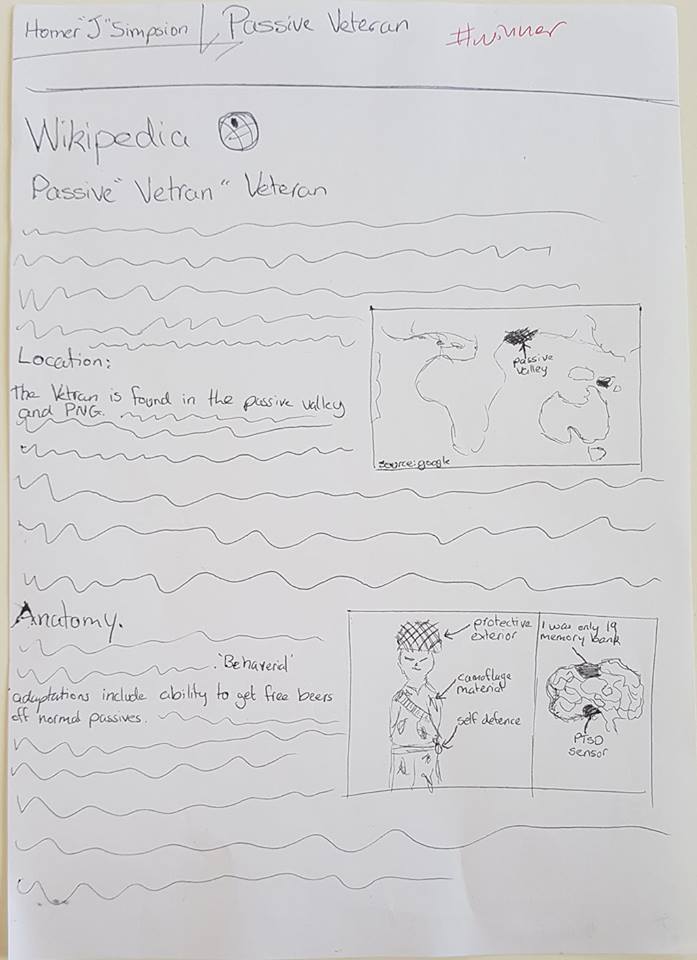 Homer "J" Simpsion | Passive Veteran #winner
Wikipedia
Passive "Vetran" Veteran
Location:
The Vetran is found in the passive valley
and PNG.
passive
valley
source: google
Anatomy.
'Behaveral'
adaptations include ability to get free beers
off normal passives.
protective
exterior
camoflage
material
self defence
I was only 19
memory bank
PTSD
sensor